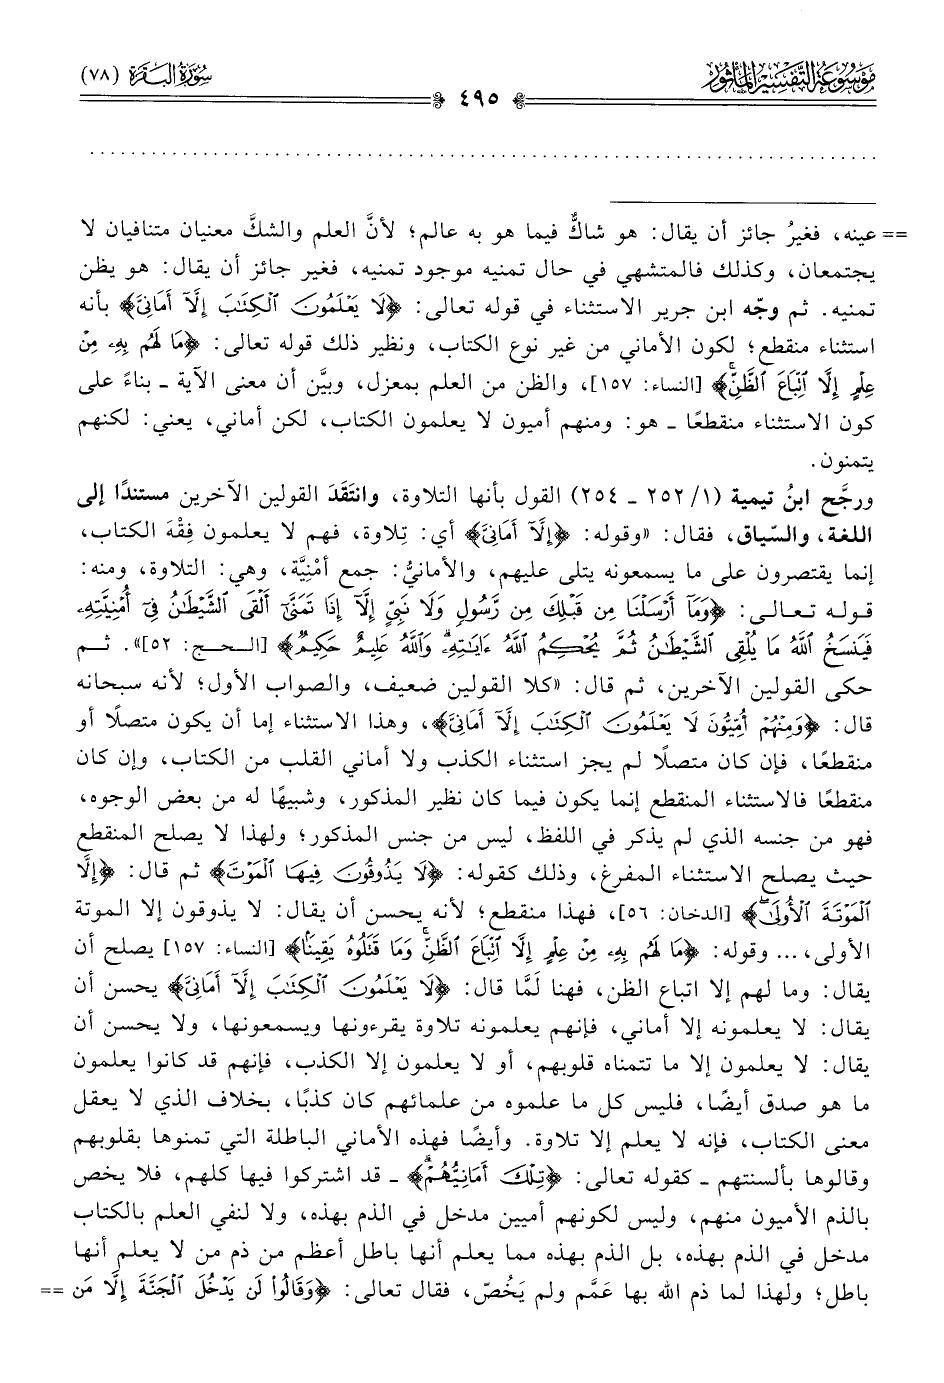 مَوْسُوعَةُ التَّفْسِيرِ المَأْثُور
٤٩٥
سُورَةُ البَقَرَة (٧٨)
== عينه، فغيرُ جائز أن يقال: هو شاكٌّ فيما هو به عالم؛ لأنَّ العلم والشكَّ معنيان متنافيان لا
يجتمعان، وكذلك فالمتشهي في حال تمنيه موجود تمنيه، فغير جائز أن يقال: هو يظن
تمنيه. ثم وجّه ابن جرير الاستثناء في قوله تعالى: ﴿لَا يَعْلَمُونَ ٱلْكِتَٰبَ إِلَّآ أَمَانِىَّ﴾ بأنه
استثناء منقطع؛ لكون الأماني من غير نوع الكتاب، ونظير ذلك قوله تعالى: ﴿مَا لَهُم بِهِۦ مِنْ
عِلْمٍ إِلَّا ٱتِّبَاعَ ٱلظَّنِّ﴾ [النساء: ١٥٧]، والظن من العلم بمعزل، وبيَّن أن معنى الآية ـ بناءً على
كون الاستثناء منقطعًا ـ هو: ومنهم أميون لا يعلمون الكتاب، لكن أماني، يعني: لكنهم
يتمنون.
ورجَّح ابنُ تيمية (١/ ٢٥٢ ـ ٢٥٤) القول بأنها التلاوة، وانتَقَدَ القولين الآخرين مستندًا إلى
اللغة، والسّياق، فقال: «وقوله: ﴿إِلَّآ أَمَانِىَّ﴾ أي: تِلاوة، فهم لا يعلمون فِقْهَ الكتاب،
إنما يقتصرون على ما يسمعونه يتلى عليهم، والأمانيُّ: جمع أمْنِيَّة، وهي: التلاوة، ومنه:
قوله تعالى: ﴿وَمَآ أَرْسَلْنَا مِن قَبْلِكَ مِن رَّسُولٍ وَلَا نَبِىٍّ إِلَّآ إِذَا تَمَنَّىٰٓ أَلْقَى ٱلشَّيْطَٰنُ فِىٓ أُمْنِيَّتِهِۦ
فَيَنسَخُ ٱللَّهُ مَا يُلْقِى ٱلشَّيْطَٰنُ ثُمَّ يُحْكِمُ ٱللَّهُ ءَايَٰتِهِۦ وَٱللَّهُ عَلِيمٌ حَكِيمٌ﴾ [الحج: ٥٢]». ثم
حكى القولين الآخرين، ثم قال: «كلا القولين ضعيف، والصواب الأول؛ لأنه سبحانه
قال: ﴿وَمِنْهُمْ أُمِّيُّونَ لَا يَعْلَمُونَ ٱلْكِتَٰبَ إِلَّآ أَمَانِىَّ﴾، وهذا الاستثناء إما أن يكون متصلًا أو
منقطعًا، فإن كان متصلًا لم يجز استثناء الكذب ولا أماني القلب من الكتاب، وإن كان
منقطعًا فالاستثناء المنقطع إنما يكون فيما كان نظير المذكور، وشبيهًا له من بعض الوجوه،
فهو من جنسه الذي لم يذكر في اللفظ، ليس من جنس المذكور؛ ولهذا لا يصلح المنقطع
حيث يصلح الاستثناء المفرغ، وذلك كقوله: ﴿لَا يَذُوقُونَ فِيهَا ٱلْمَوْتَ﴾ ثم قال: ﴿إِلَّا
ٱلْمَوْتَةَ ٱلْأُولَىٰ﴾ [الدخان: ٥٦]، فهذا منقطع؛ لأنه يحسن أن يقال: لا يذوقون إلا الموتة
الأولى، ... وقوله: ﴿مَا لَهُم بِهِۦ مِنْ عِلْمٍ إِلَّا ٱتِّبَاعَ ٱلظَّنِّ وَمَا قَتَلُوهُ يَقِينًۢا﴾ [النساء: ١٥٧] يصلح أن
يقال: وما لهم إلا اتباع الظن، فهنا لَمَّا قال: ﴿لَا يَعْلَمُونَ ٱلْكِتَٰبَ إِلَّآ أَمَانِىَّ﴾ يحسن أن
يقال: لا يعلمونه إلا أماني، فإنهم يعلمونه تلاوة يقرءونها ويسمعونها، ولا يحسن أن
يقال: لا يعلمون إلا ما تتمناه قلوبهم، أو لا يعلمون إلا الكذب، فإنهم قد كانوا يعلمون
ما هو صدق أيضًا، فليس كل ما علموه من علمائهم كان كذبًا، بخلاف الذي لا يعقل
معنى الكتاب، فإنه لا يعلم إلا تلاوة. وأيضًا فهذه الأماني الباطلة التي تمنوها بقلوبهم
وقالوها بألسنتهم ـ كقوله تعالى: ﴿تِلْكَ أَمَانِيُّهُمْ﴾ ـ قد اشتركوا فيها كلهم، فلا يخص
بالذم الأميون منهم، وليس لكونهم أميين مدخل في الذم بهذه، ولا لنفي العلم بالكتاب
مدخل في الذم بهذه، بل الذم بهذه مما يعلم أنها باطل أعظم من ذم من لا يعلم أنها
باطل؛ ولهذا لما ذم الله بها عَمَّم ولم يَخُصّ، فقال تعالى: ﴿وَقَالُوا۟ لَن يَدْخُلَ ٱلْجَنَّةَ إِلَّا مَن ==